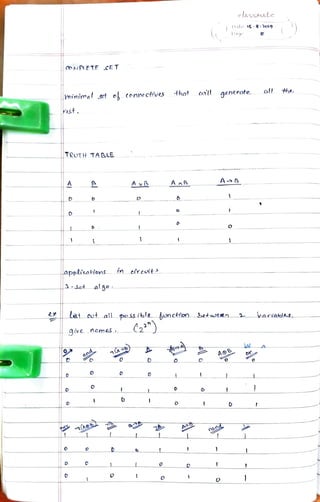 classmate
Date 16-8-2019
Page
COMPLETE SET
minimal set of connectives that will generate all the
rest.
TRUTH TABLE
A B A∨B A∧B A→B
0 0 0 0 1
0 1 1 0 1
1 0 1 0 0
1 1 1 1 1
applications in circuits
3-sat algo.
List out all possible function between 2 variables,
give names. (2^2^n)
and ¬(A→B) A B A⊕B or
0 0 0 0 0 0 0 0
0 0 0 0 1 1 1 1
0 0 1 1 0 0 1 1
0 1 0 1 0 1 0 1
¬(A⊕B) ¬B ¬A A→B nand
1 1 1 1 1 1 1 1
0 0 0 0 1 1 1 1
0 0 1 1 0 0 1 1
0 1 0 1 0 1 0 1